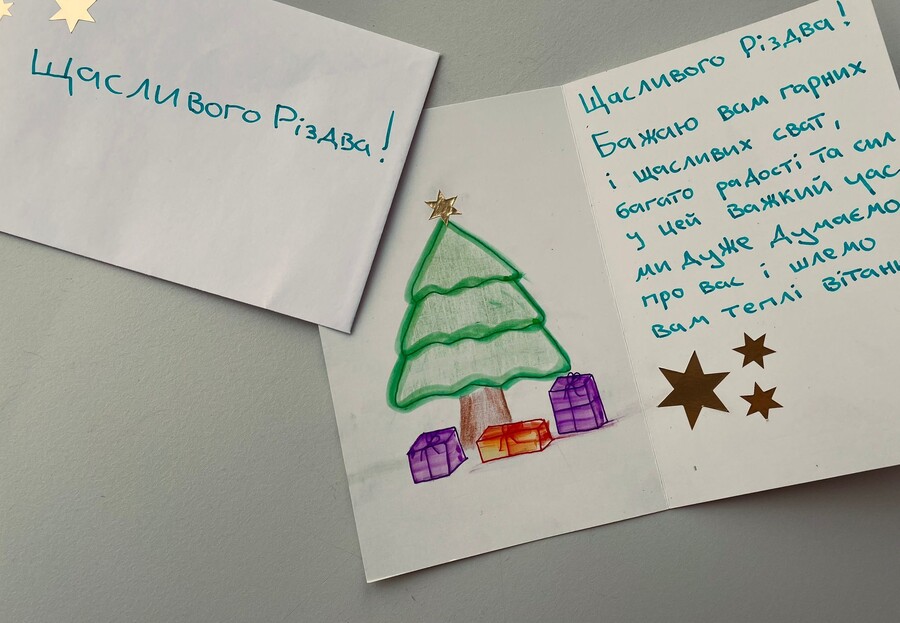 Щасливого Різдва!
Щасливого Різдва!
Бажаю вам гарних
і щасливих сват,
багато радості та сил
у цей важкий час
ми дуже думаємо
про вас і шлемо
вам теплі